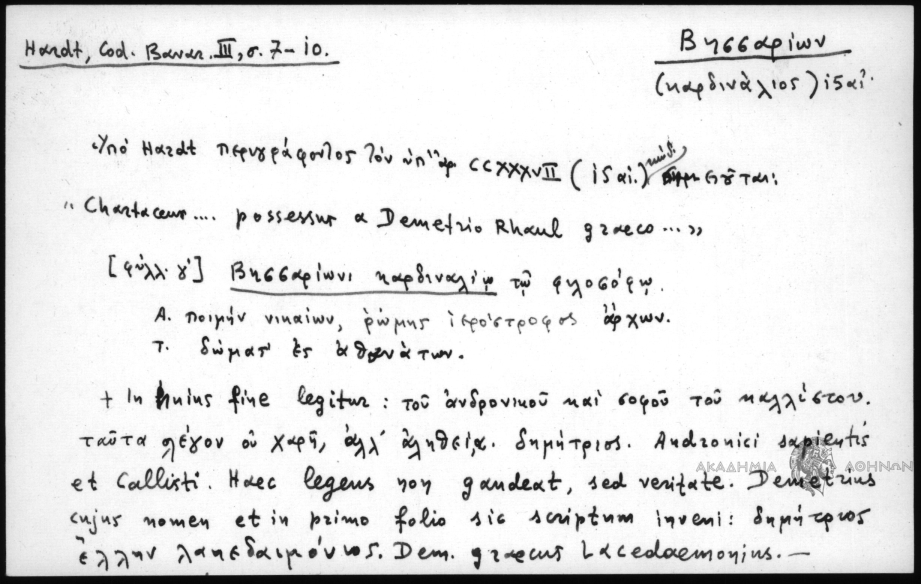 Hardt, Cod. Bavar. III, σ. 7-10.
Βησσαρίων
(καρδινάλιος) ιςαί·
Ὑπό Hardt περιγράφοντος τόν ὑπ' ἀρ. CCXXXVII (ιςαί.) κώδ. σημειοῦται:
"Chartaceus.... possessus a Demetrio Rhaul graeco...»
[φύλλ. γ'] Βησσαρίωνι καρδιναλίῳ τῷ φιλοσόφῳ.
Α. ποιμήν νικαίων, ῥώμης ἱερόστροφος ἄρχων.
Τ. δώματ' ἐς ἀθανάτων.
+ In huius fine legitur: τοῦ ἀνδρονικοῦ καί σοφοῦ τοῦ καλλίστου.
ταῦτα λέγον οὐ χαρῇ, ἀλλ' ἀληθείᾳ. δημήτριος. Andronici sapientis
ΑΚΑΔΗΜΙΑ ΑΘΗΝΩΝ
et Callisti. Haec legens non gaudeat, sed veritate. Demetrius
cujus nomen et in primo folio sic scriptum inveni: δημήτριος
ἕλλην λακεδαιμόνιος. Dem. graecus Lacedaemonius. —